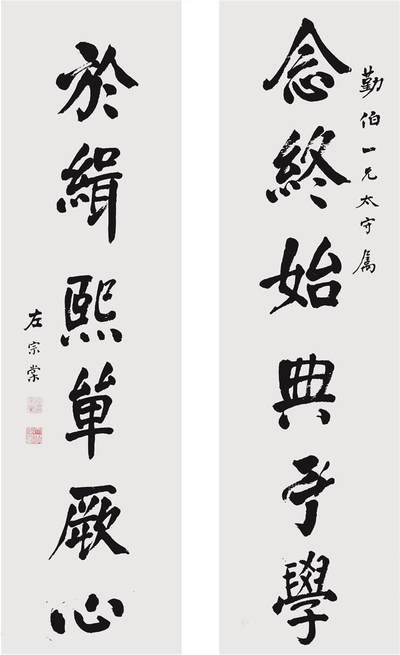 勤伯一兄太守屬
念終始典于學
於緝熙單厥心
左宗棠